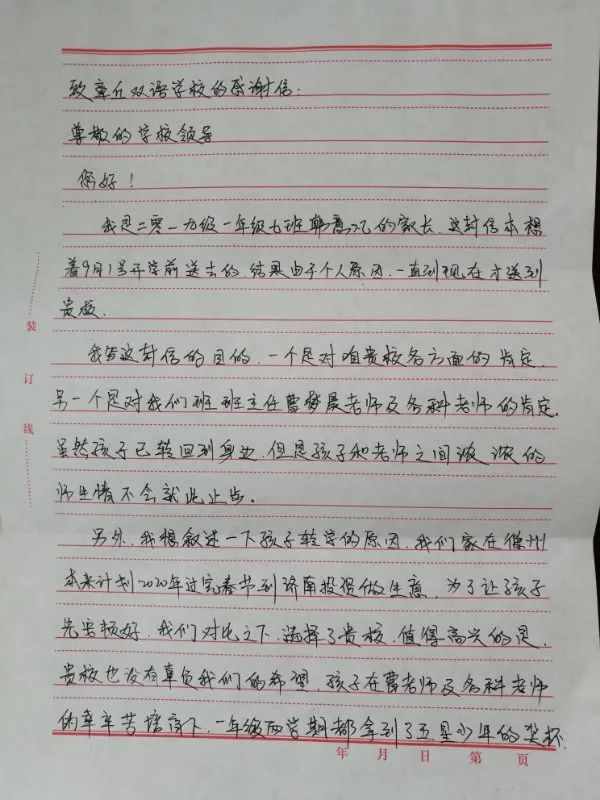 致章丘双语学校的感谢信:
尊敬的学校领导
您好!
我是二零一九级一年级七班韩 的家长,这封信本想
着9月1号开学前送去的,结果由于个人原因,一直到现在才送到
贵校.
我写这封信的目的,一个是对咱贵校各方面的肯定,
另一个是对我们班班主任曹梦晨老师及各科老师的肯定.
虽然孩子已转回到身边,但是孩子和老师之间浓浓的
师生情不会就此止步。
另外,我想叙述一下孩子转学的原因,我们家在德州
本来计划2020年过完春节到济南投资做生意,为了让孩子
先安顿好,我们对比之下,选择了贵校,值得高兴的是,
贵校也没有辜负我们的希望,孩子在曹老师及各科老师
的辛辛苦培育下,一年级两学期都拿到了五星少年的奖杯.
装
订
线
年 月 日 第 页